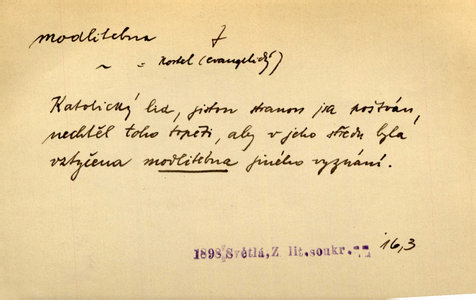 modlitebna f
~ = kostel (evangelický)
Katolický lid, jistou stranou jsa poštván,
nechtěl toho trpěti, aby v jeho středu byla
vztyčena modlitebna jiného vyznání.
1898 Světlá, Z lit. soukr. 16,3